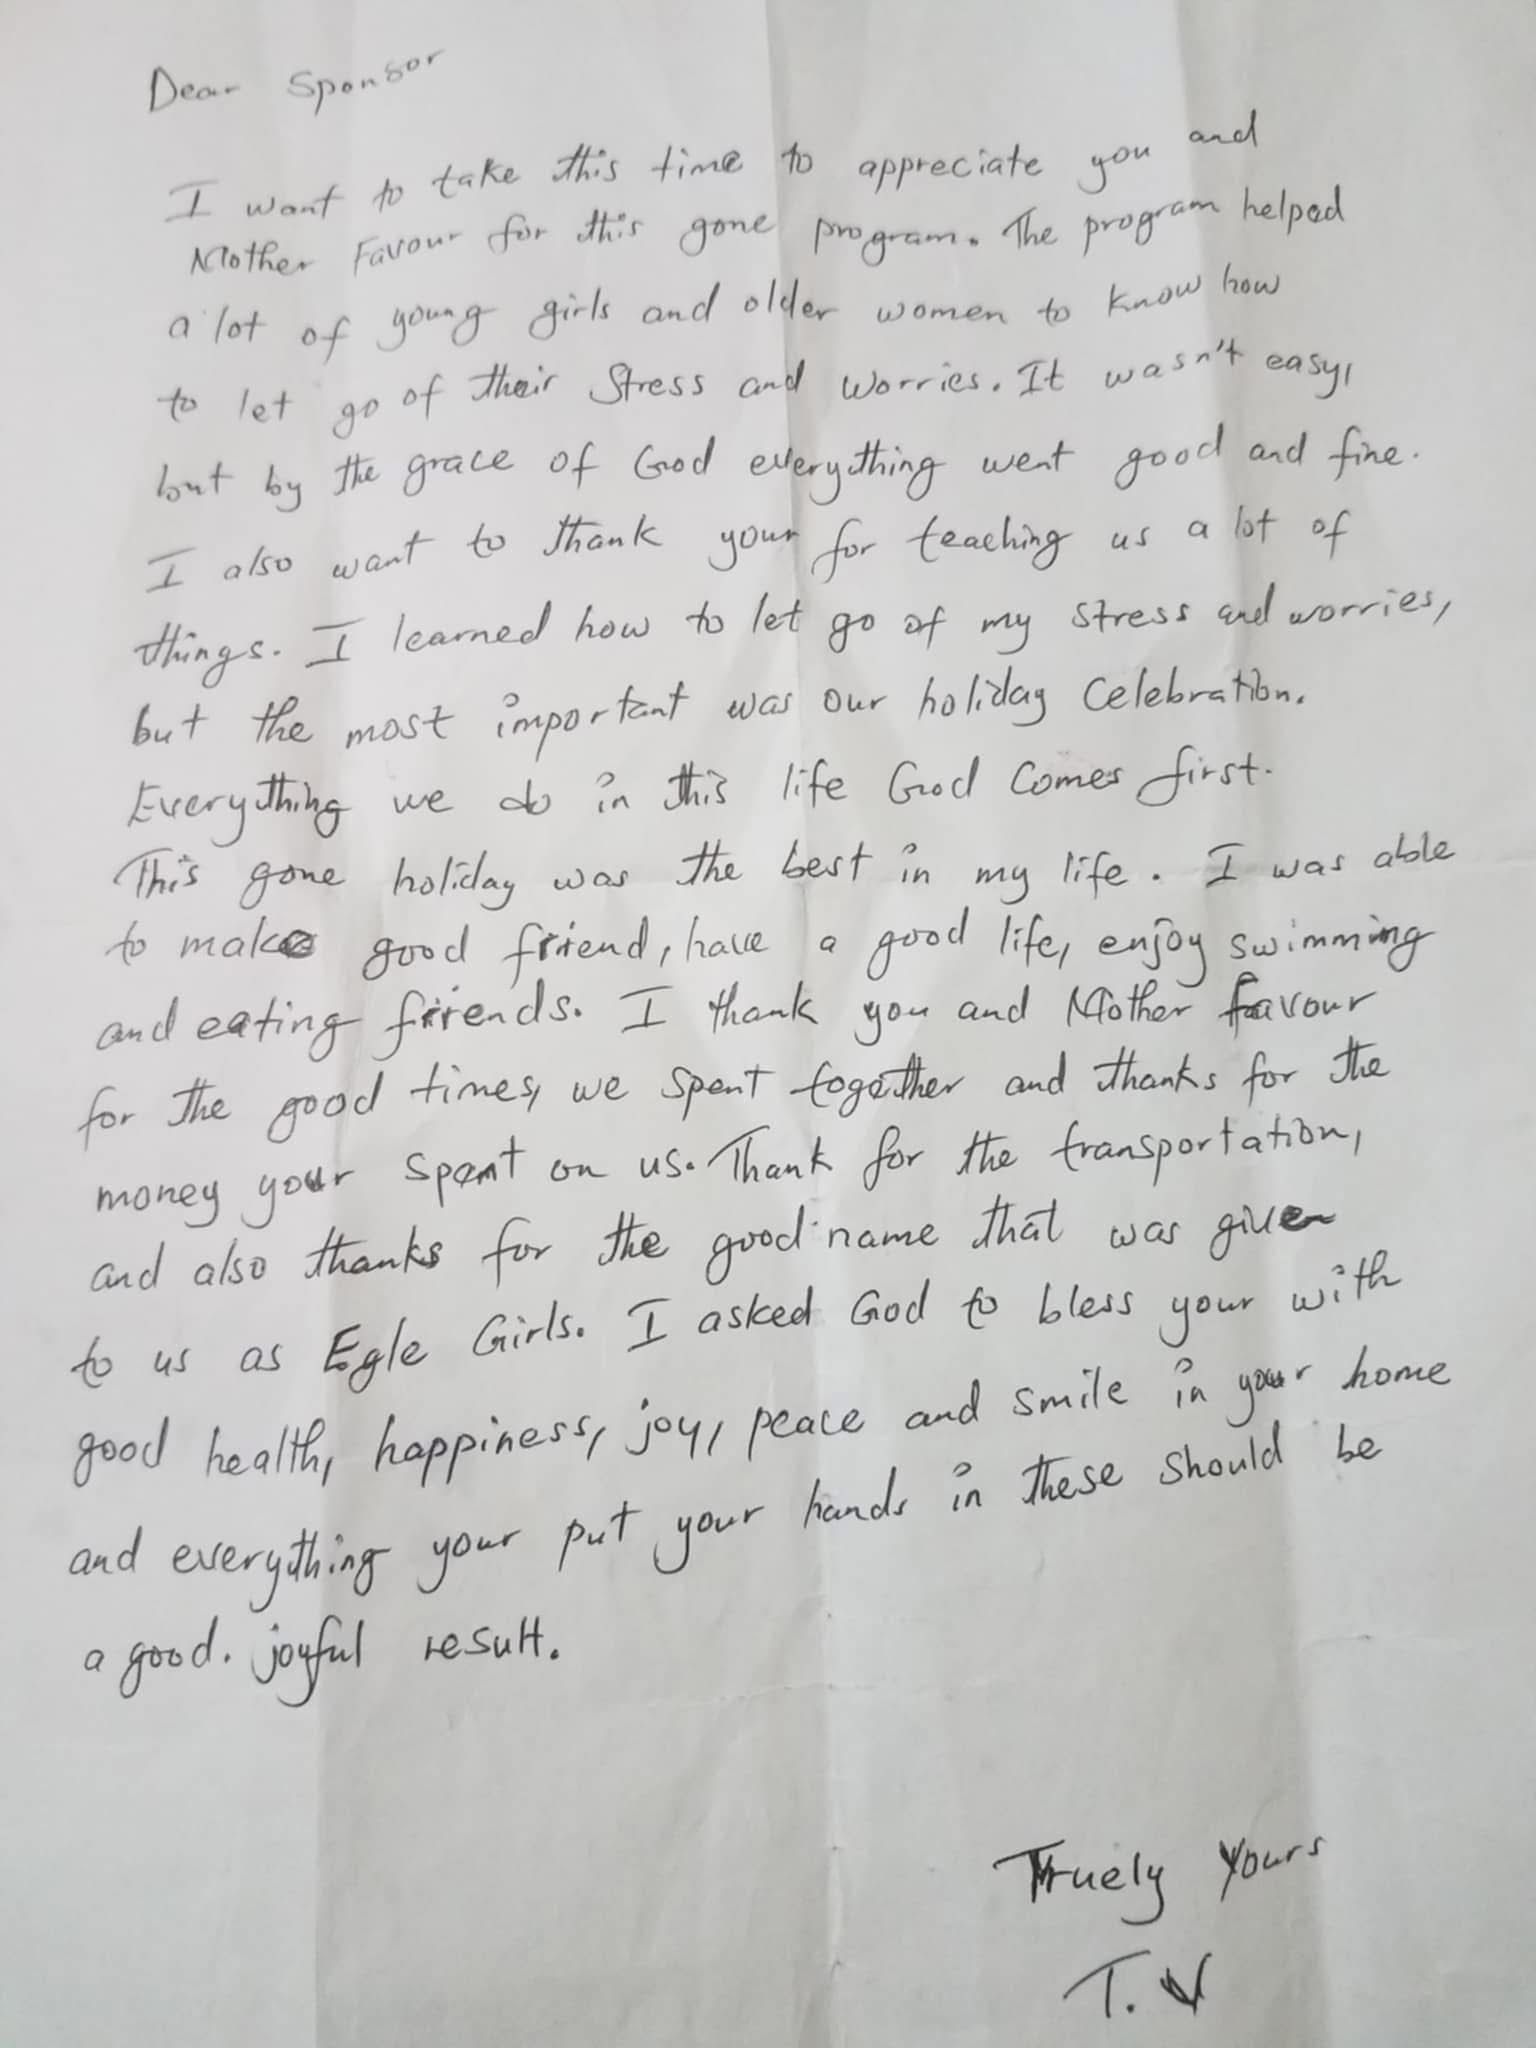 Dear Sponsor
I want to take this time to appreciate you and
Mother Favour for this gone program. The program helped
a lot of young girls and older women to know how
to let go of their stress and worries. It wasn't easy,
but by the grace of God everything went good and fine.
I also want to thank your for teaching us a lot of
things. I learned how to let go of my stress and worries,
but the most important was our holiday Celebration.
Everything we do in this life God Comes first.
This gone holiday was the best in my life. I was able
to make good friend, have a good life, enjoy swimming
and eating friends. I thank you and Mother favour
for the good times, we spent together and thanks for the
money your spent on us. Thank for the transportation,
and also thanks for the good name that was given
to us as Egle Girls. I asked God to bless your with
good health, happiness, joy, peace and smile in your home
and everything your put your hands in these should be
a good. joyful result.
Truely Yours
T. V